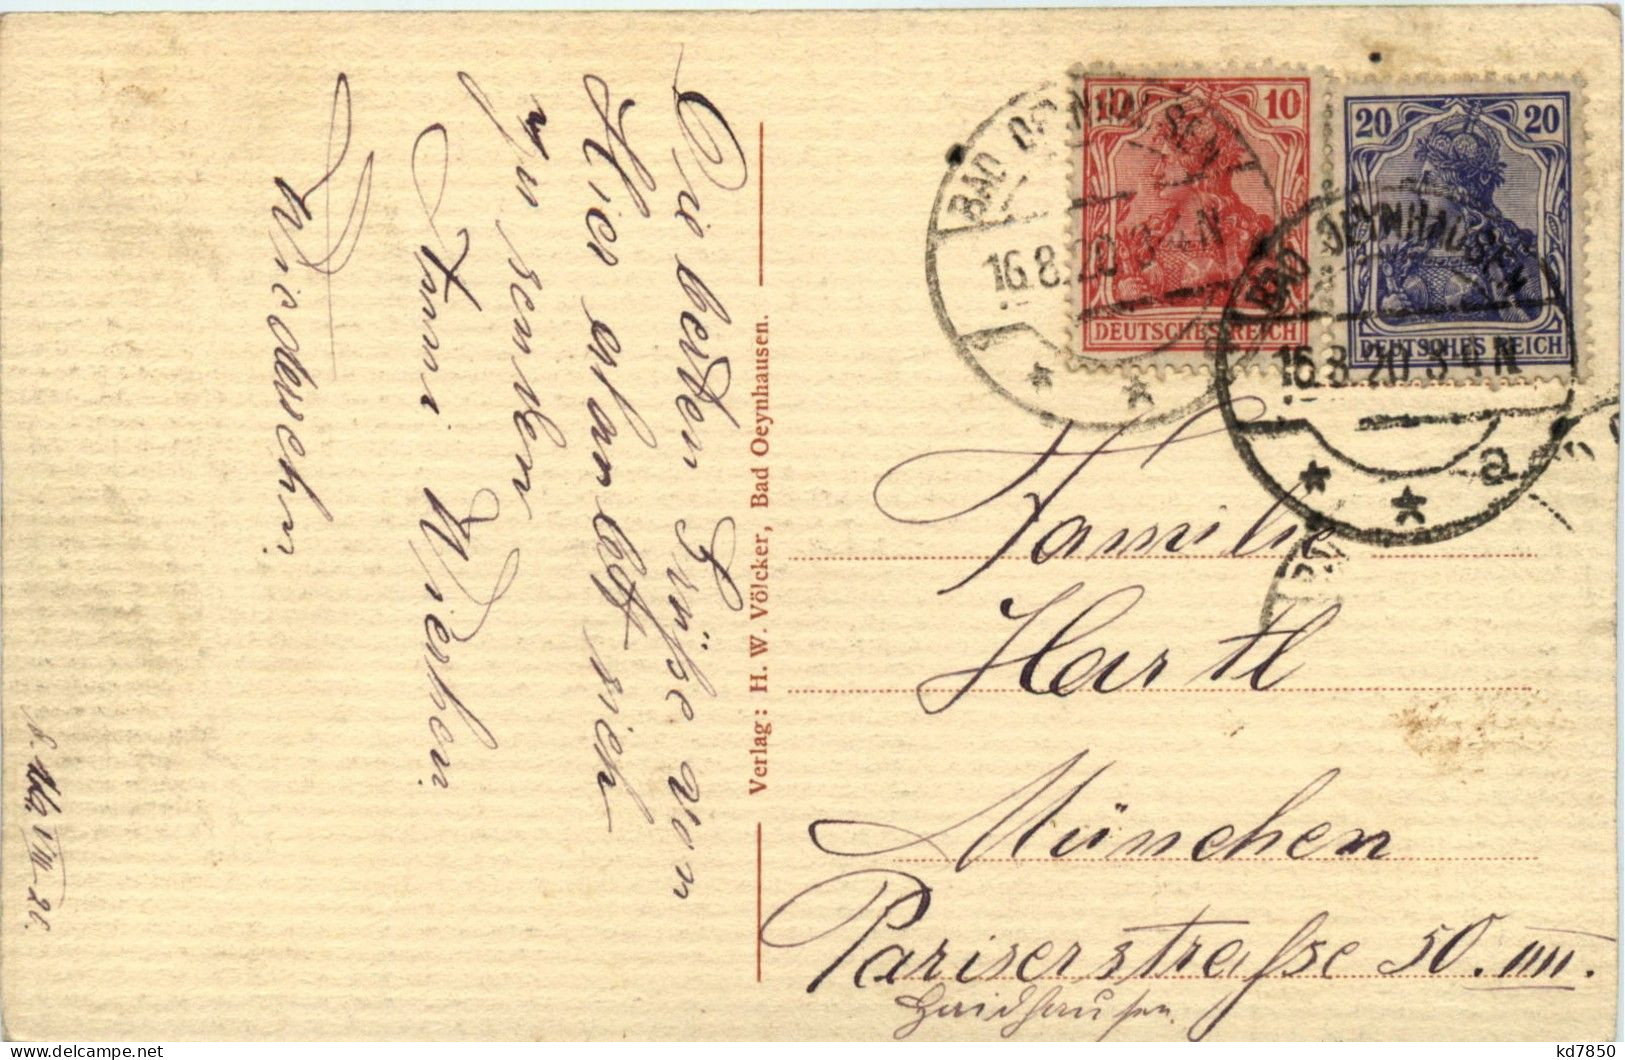 Die besten Grüße von
Hier erlaubt sich
zu senden
Anni
Wiedersehn
Verlag: H. W. Völcker, Bad Oeynhausen.
10 10
DEUTSCHES REICH
20 20
DEUTSCHES REICH
BAD OEYNHAUSEN
16.8.20 3-4 N
BAD OEYNHAUSEN
16.8.20 3-4 N
Familie
Hartl
München
Pariserstraße 50. IIII.
Haidhausen.
kd7850